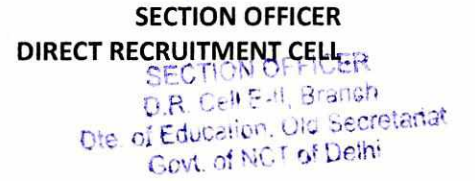 SECTION OFFICER
DIRECT RECRUITMENT CELL
SECTION OFFICER
D.R. Cell E-II, Branch
Dte. of Education, Old Secretariat
Govt. of NCT of Delhi